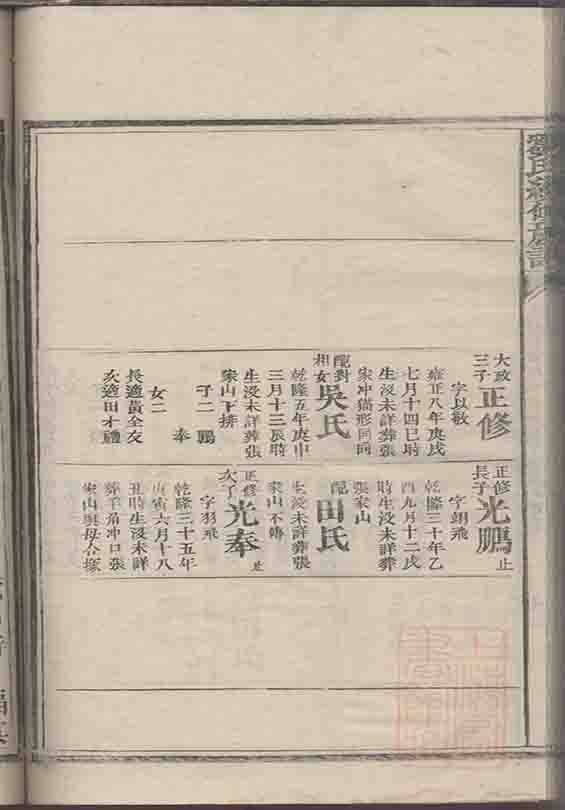 氏續修族譜
大政
三子
正修
字以敬
雍正八年庚戌
七月十四巳時
生沒未詳葬張
家冲猫形同向
配對
相女
吳氏
乾隆五年庚申
三月十三辰時
生沒未詳葬張
家山下排
子二 鵬
奉
女二
長適黃全友
次適田才禮
正修
長子
光鵬
止
字翊飛
乾隆三十年乙
酉九月十二戌
時生沒未詳葬
張家山
配
田氏
生沒未詳葬張
家山不傳
正修
次子
光奉
止
字羽飛
乾隆三十五年
庚寅六月十八
丑時生沒未詳
葬羊角冲口張
家山與母合塚